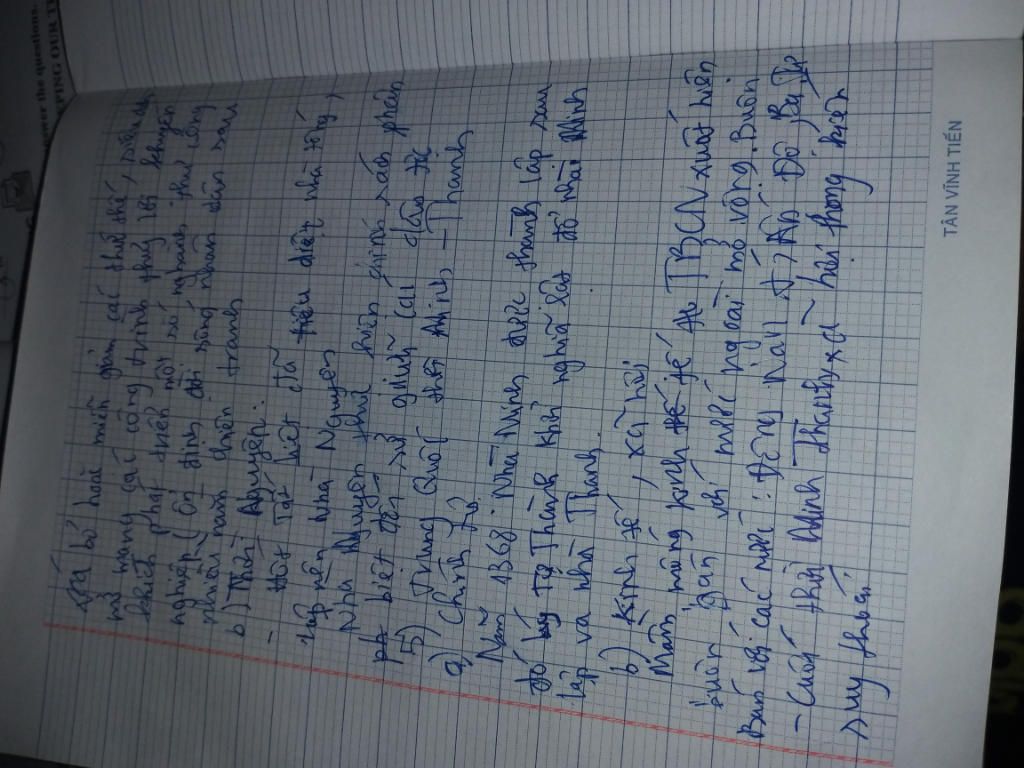 xóa bỏ hoặc miễn giảm các thuế
mở mang các công trình thủy lợi, khuyến
khích phát triển một số nghành thủ công
nghiệp. Ổn định đời sống nhân dân sau
nhiều năm chiến tranh
b) Thời Nguyên:
- Hốt Tất Liệt đã tiêu diệt nhà Tống,
lập nên Nhà Nguyên
Nhà Nguyên thực hiện chính sách phân
biệt đối xử giữa các dân tộc
5) Trung Quốc thời Minh - Thanh
a) Chính trị
Năm 1368: Nhà Minh được thành lập sau
đó Lý Tự Thành khởi nghĩa lật đổ nhà Minh
lập ra nhà Thanh.
b) Kinh tế, xã hội
Mầm mống kinh tế TBCN xuất hiện
buôn bán với nước ngoài mở rộng. Buôn
Bán với các nước: Đông nam á, Ấn Độ, Ba Tư
- Cuối thời Minh Thanh, xã hội phong kiến
suy thoái.
TÂN VĨNH TIẾN
wer the questions.
PING OUR T